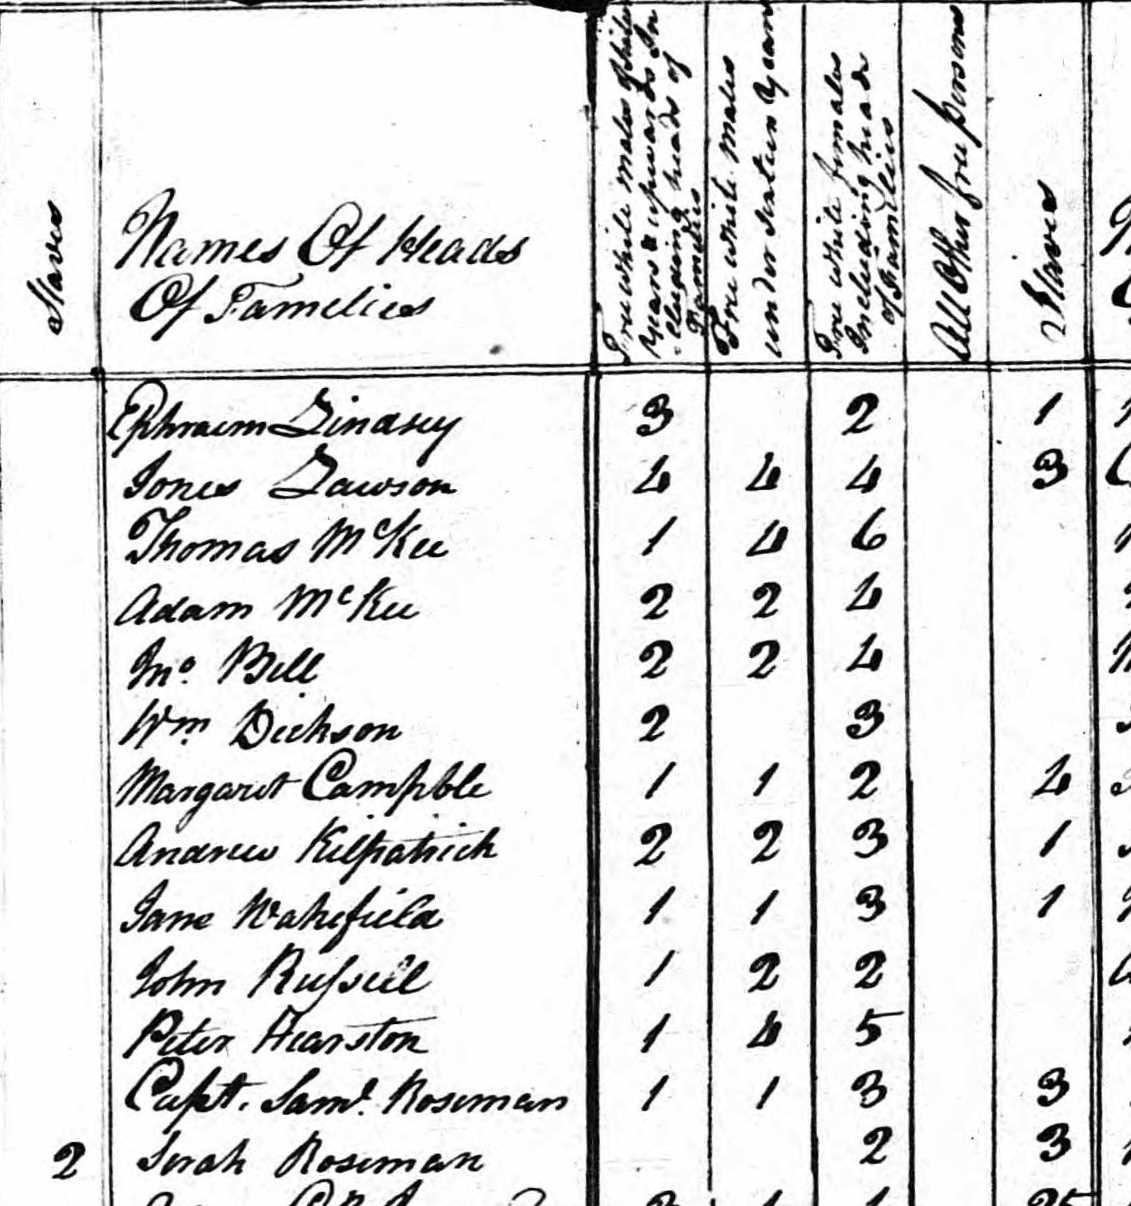 Slaves
Names Of Heads
Of Famelies
Free white males of sixteen
years & upwards In
cluding heads of
Families
Free white Males
under sixteen years
Free white females
Including heads
of Families
All Other free persons
Slaves
Ephraim Lindsey 3 2 1
Jones Lawson 4 4 4 3
Thomas McKee 1 4 6
Adam McKee 2 2 4
Jno. Bell 2 2 4
Wm. Dickson 2 3
Margaret Campble 1 1 2 4
Andrew Kilpatrick 2 2 3 1
Jane Wakefield 1 1 3 1
John Russell 1 2 2
Peter Hearston 1 4 5
Capt. Saml. Roseman 1 1 3 3
2 Serah Roseman 2 3